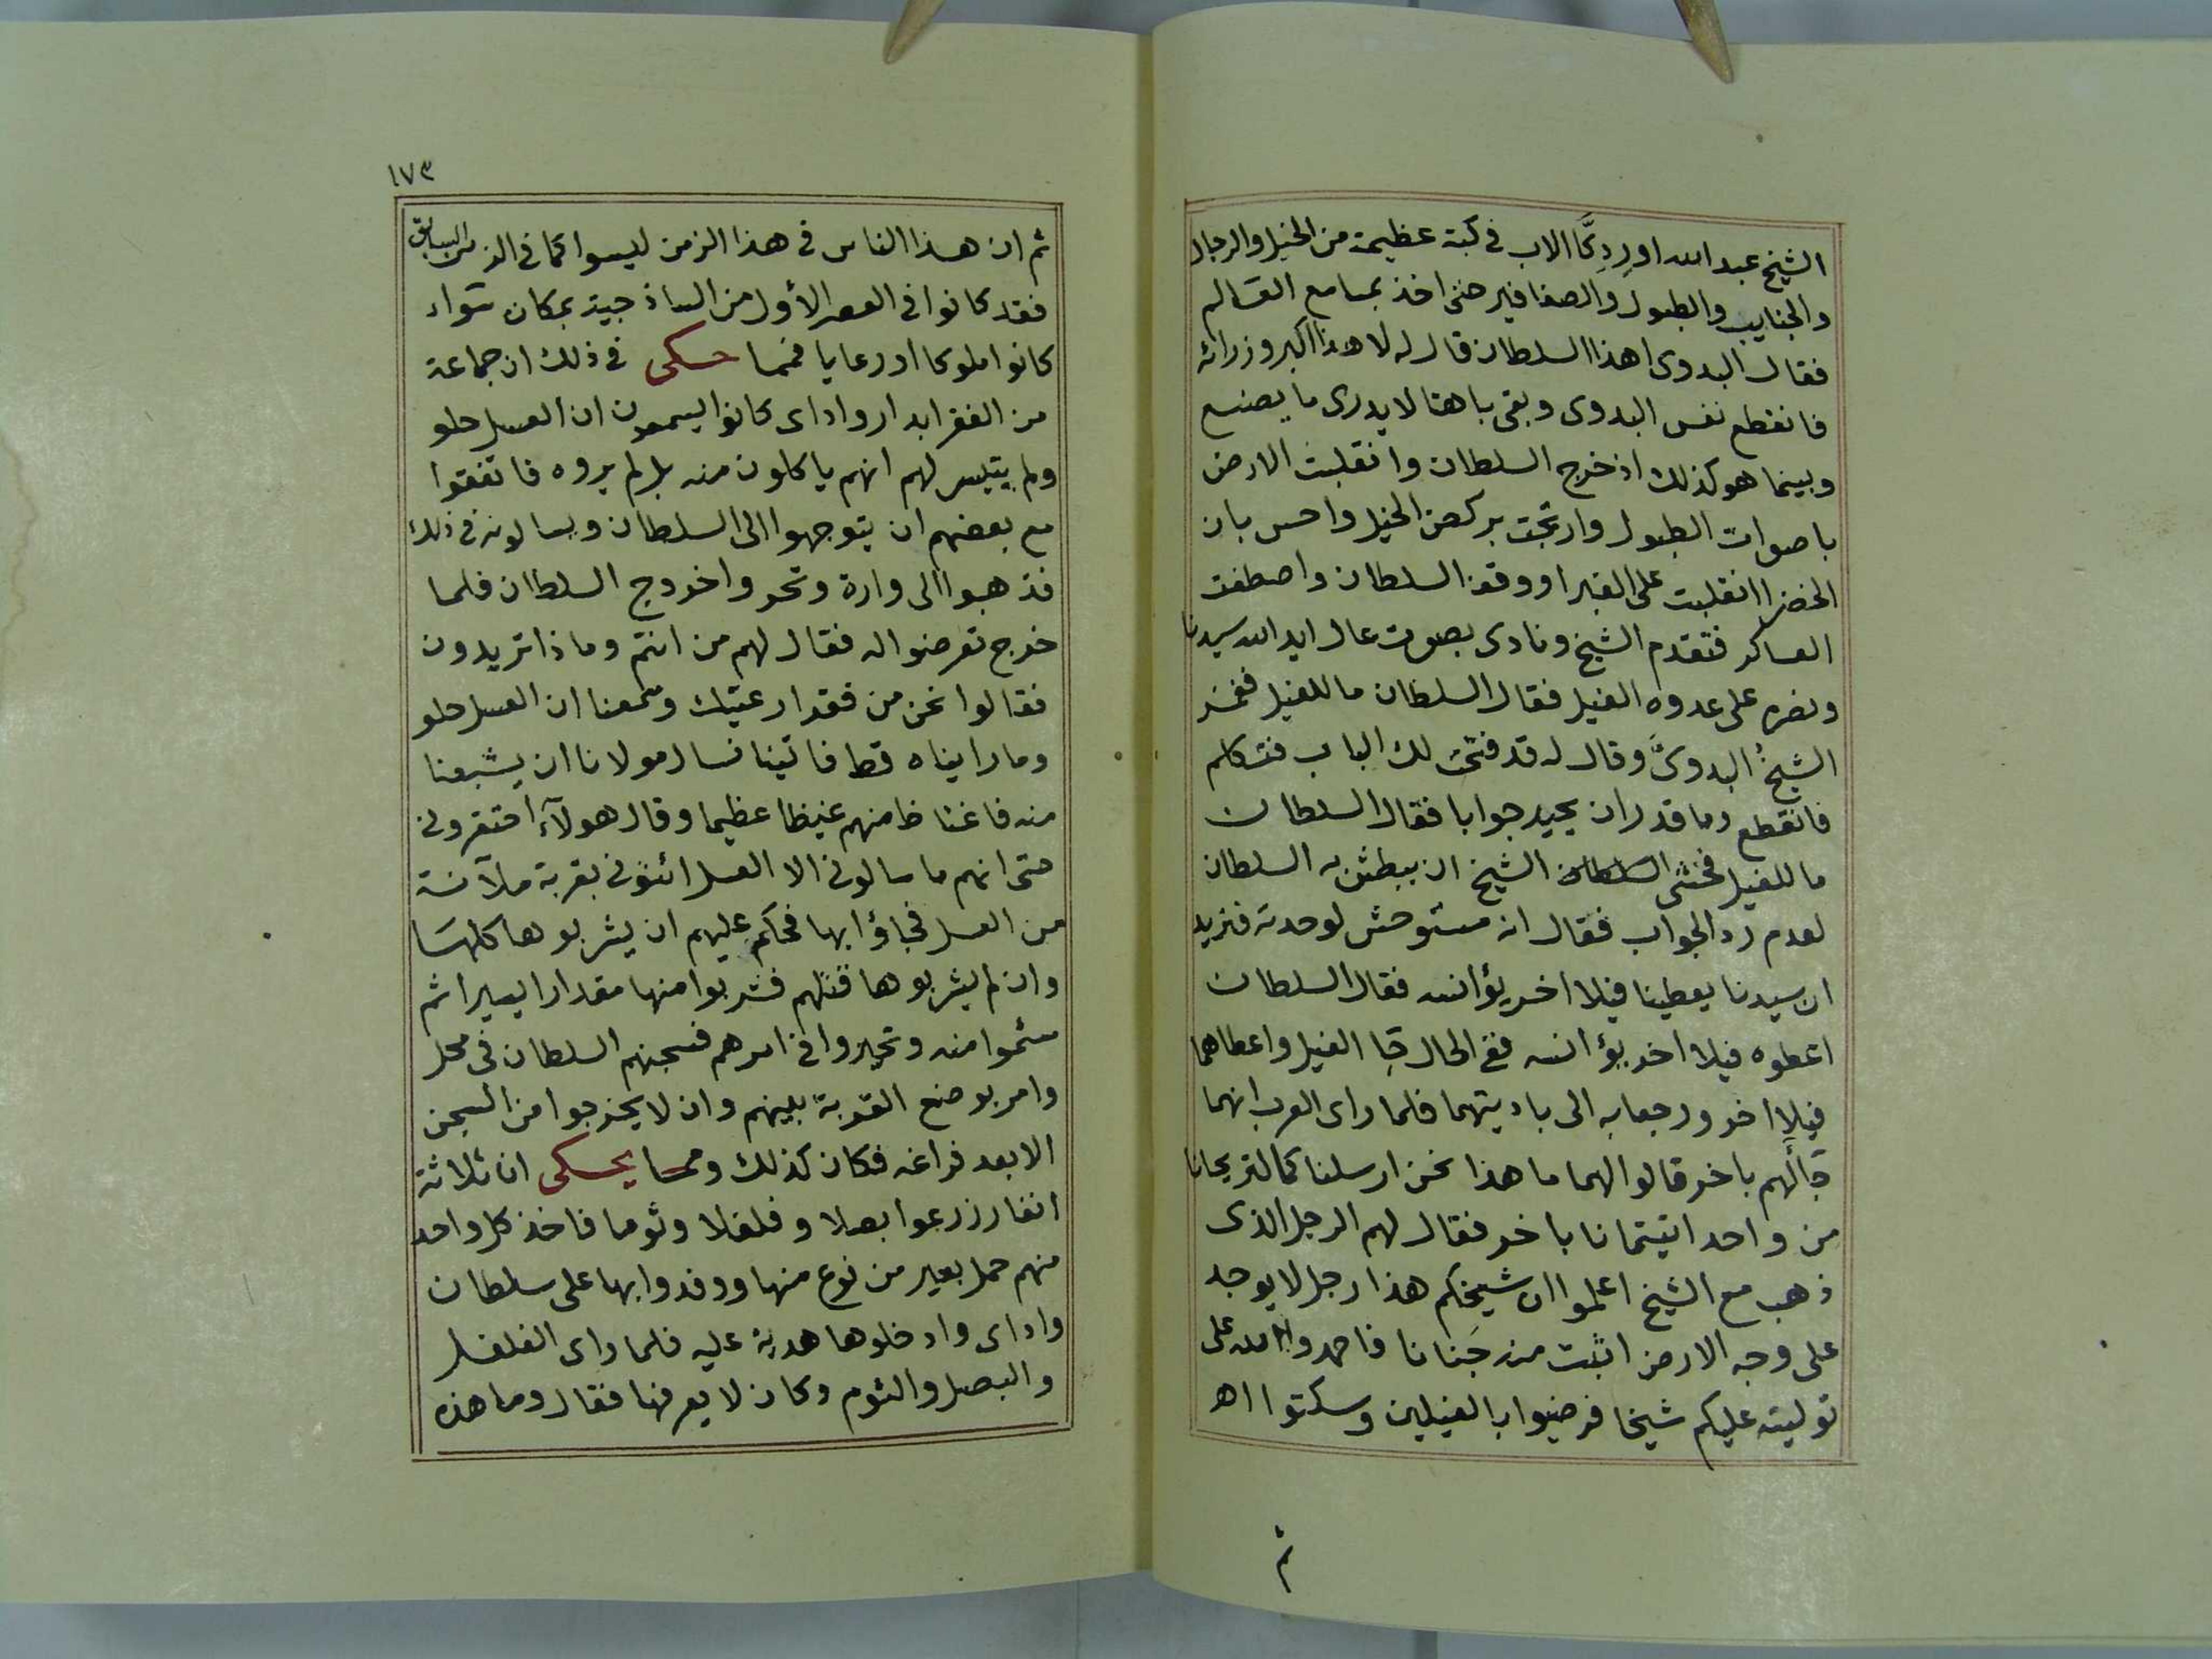 الشيخ عبد الله اورد كا الاب فى كبة عظيمة من الخيل والرجال
والجنايب والطبول والصفافير حتى اخذ بمسامع العالم
فقال البدوى اهذا السلطان قال له لا هذا اكبر وزرائه
فانقطع نفس البدوى وبقى باهتا لا يدرى ما يصنع
وبينما هو كذلك اذ خرج السلطان وانقلبت الارض
باصوات الطبول وارتجت بركض الخيل واحس بان
الخضرا انقلبت على الغبرا ووقف السلطان واصطفت
العساكر فتقدم الشيخ ونادى بصوت عال ايد الله سيدنا
ونصره على عدوه الفيل فقال السلطان ما للفيل فغمز
الشيخُ البدوىَّ وقال له قد فتحت لك الباب فتكلم
فانقطع وما قدر ان يجيد جوابا فقال السلطان
ما للفيل فخشى السلطان الشيخ ان يبطش به السلطان
لعدم رد الجواب فقال انه مستوحش لوحدته فنريد
ان سيدنا يعطينا فيلا اخر يؤانسه فقال السلطان
اعطوه فيلا اخر يؤانسه ففى الحال جا الفيل واعطاهما
فيلا اخر ورجعا به الى باديتهما فلما راى العرب انهما
جاألهم باخر قالوا لهما ما هذا نحن ارسلناكما لتريحانا
من واحد اتيتمانا باخر فقال لهم الرجل الذى
ذهب مع الشيخ اعلموا ان شيخكم هذا رجل لا يوجد
على وجه الارض اثبت منه جَنانا فاحمدوا الله على
توليته عليكم شيخا فرضيوا بالفيلين وسكتوا اهـ
ثم
١٧٣
ثم ان هذا الناس فى هذا الزمن ليسوا كما فى الزمن السابق
فقد كانوا فى العصر الأول من الساذجية بمكان سَواء
كانوا ملوكا او رعايا فمما حكى فى ذلك ان جماعة
من الفقرا بدار واداى كانوا يسمعون ان العسل حلو
ولم يتيسر لهم انهم ياكلون منه بل لم يروه فاتفقوا
مع بعضهم ان يتوجهوا الى السلطان ويسالونه فى ذلك
فذهبوا الى وارة وتحروا خروج السلطان فلما
خرج تعرضوا له فقال لهم من انتم وماذا تريدون
فقالوا نحن من فقدا رعيتك وسمعنا ان العسل حلو
وما رايناه قط فاتينا نسال مولانا ان يشبعنا
منه فاغتاظ منهم غيظا عظيما وقال هولآء احتقرونى
حتى انهم ما سالونى الا العسل ائتونى بقربة ملآنة
من العسل فجاؤا بها فحكم عليهم ان يشربوها كلها
وان لم يشربوها قتلهم فشربوا منها مقدارا يسيرا ثم
سئموا منه وتحيروا فى امرهم فسجنهم السلطان فى محل
وامر بوضع القربة بينهم وان لا يخرجوا من السجن
الا بعد فراغه فكان كذلك ومما يحكى ان ثلاثة
انفار زرعوا بصلا وفلفلا وثوما فاخذ كل واحد
منهم حمل بعير من نوع منها ووفدوا بها على سلطان
واداى وادخلوها هدية عليه فلما راى الفلفل
والبصل والثوم وكان لا يعرفها فقال وما هذه